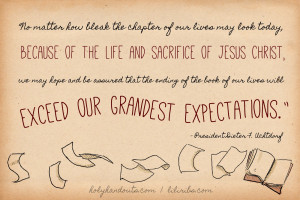 No matter how bleak the chapter of our lives may look today,
BECAUSE OF THE LIFE AND SACRIFICE OF JESUS CHRIST,
we may hope and be assured that the ending of the book of our lives will
EXCEED OUR GRANDEST EXPECTATIONS."
-President Dieter F. Uchtdorf
holyhandouts.com |